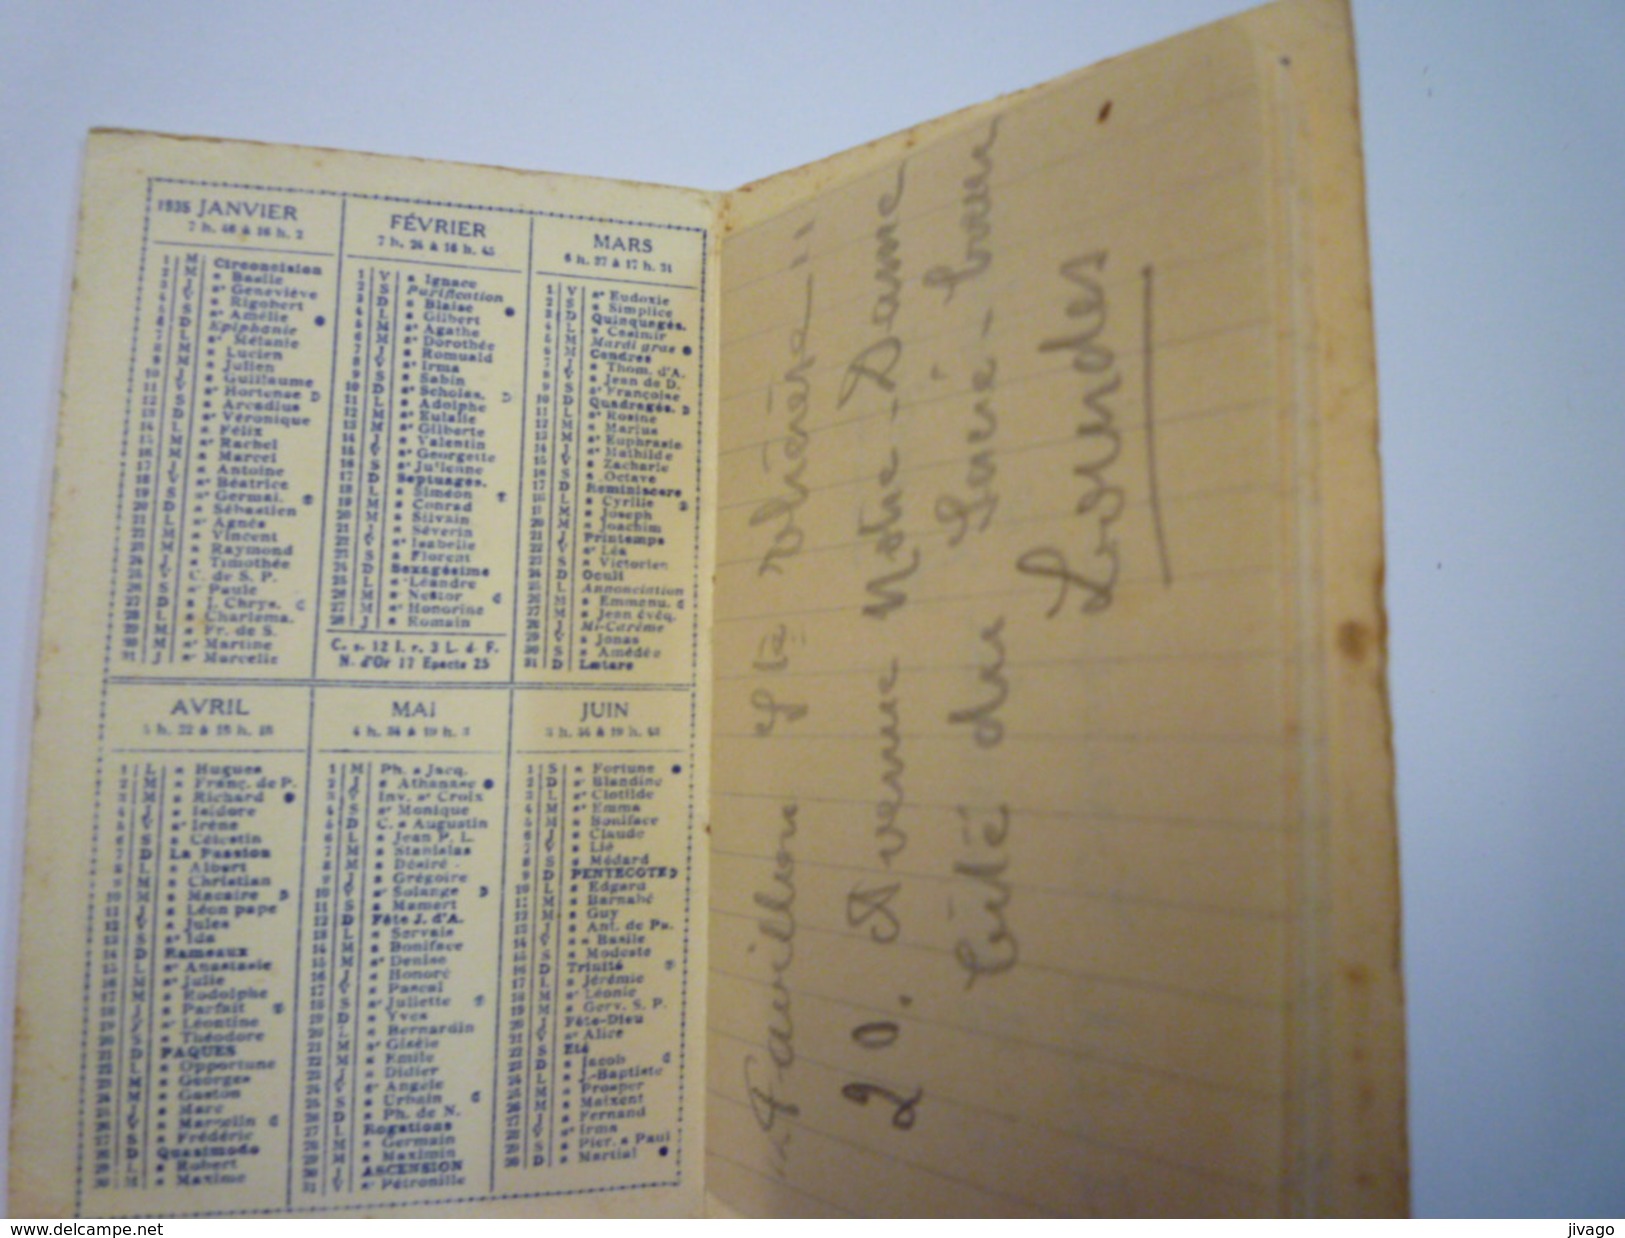 1935 JANVIER
7 h. 46 à 16 h. 3
1 M Circoncision
2 M s Basile
3 J se Geneviève
4 V s Rigobert
5 S se Amélie
6 D Epiphanie
7 L se Mélanie
8 M s Lucien
9 M s Julien
10 J s Guillaume
11 V se Hortense
12 S s Arcadius
13 D se Véronique
14 L s Félix
15 M se Rachel
16 M s Marcel
17 J s Antoine
18 V se Béatrice
19 S se Germai.
20 D s Sébastien
21 L se Agnès
22 M s Vincent
23 M s Raymond
24 J s Timothée
25 V C. de S. P.
26 S se Paule
27 D s J. Chrys.
28 L s Charlema.
29 M s Fr. de S.
30 M se Martine
31 J se Marcelle
FÉVRIER
7 h. 24 à 16 h. 45
1 V s Ignace
2 S Purification
3 D s Blaise
4 L s Gilbert
5 M se Agathe
6 M se Dorothée
7 J s Romuald
8 V se Irma
9 S s Sabin
10 D se Scholas.
11 L s Adolphe
12 M se Eulalie
13 M se Gilberte
14 J s Valentin
15 V se Georgette
16 S se Julienne
17 D Septuages.
18 L s Siméon
19 M s Conrad
20 M s Silvain
21 J s Séverin
22 V se Isabelle
23 S s Florent
24 D Sexagésime
25 L s Léandre
26 M s Nestor
27 M se Honorine
28 J s Romain
C. s. 12 I. r. 3 L. d. F.
N. d'Or 17 Epacte 25
MARS
6 h. 37 à 17 h. 31
1 V se Eudoxie
2 S s Simplice
3 D Quinquagés.
4 L s Casimir
5 M Mardi gras
6 M Cendres
7 J s Thom. d'A.
8 V s Jean de D.
9 S se Françoise
10 D Quadragés.
11 L se Rosine
12 M s Marius
13 M se Euphrasie
14 J se Mathilde
15 V s Zacharie
16 S s Octave
17 D Reminiscere
18 L s Cyrille
19 M s Joseph
20 M s Joachim
21 J Printemps
22 V se Léa
23 S s Victorien
24 D Oculi
25 L Annonciation
26 M s Emmanu.
27 M s Jean évêq.
28 J Mi-Carême
29 V s Jonas
30 S s Amédée
31 D Lætare
AVRIL
5 h. 32 à 18 h. 18
1 L s Hugues
2 M s Franç. de P.
3 M s Richard
4 J s Isidore
5 V se Irène
6 S s Célestin
7 D La Passion
8 L s Albert
9 M s Christian
10 M s Macaire
11 J s Léon pape
12 V s Jules
13 S se Ida
14 D Rameaux
15 L se Anastasie
16 M se Julie
17 M s Rodolphe
18 J s Parfait
19 V se Léontine
20 S s Théodore
21 D PAQUES
22 L s Opportune
23 M s Georges
24 M s Gaston
25 J s Marc
26 V s Marcelin
27 S s Frédéric
28 D Quasimodo
29 L s Robert
30 M s Maxime
MAI
4 h. 34 à 19 h. 3
1 M Ph. s Jacq.
2 J s Athanase
3 V Inv. se Croix
4 S se Monique
5 D C. s Augustin
6 L s Jean P. L.
7 M s Stanislas
8 M s Désiré
9 J s Grégoire
10 V se Solange
11 S s Mamert
12 D Fête J. d'A.
13 L s Servais
14 M s Boniface
15 M se Denise
16 J s Honoré
17 V s Pascal
18 S se Juliette
19 D s Yves
20 L s Bernardin
21 M se Gisèle
22 M s Emile
23 J s Didier
24 V se Angèle
25 S s Urbain
26 D s Ph. de N.
27 L Rogations
28 M s Germain
29 M s Maximin
30 J ASCENSION
31 V se Pétronille
JUIN
1 S s Fortune
2 D se Blandine
3 L se Clotilde
4 M se Emma
5 M s Boniface
6 J s Claude
7 V s Lié
8 S s Médard
9 D PENTECOTE
10 L s Edgard
11 M s Barnabé
12 M s Guy
13 J s Ant. de Pa.
14 V s Basile
15 S s Modeste
16 D Trinité
17 L s Jérémie
18 M se Léonie
19 M s Gerv. S. P.
20 J Fête-Dieu
21 V se Alice
22 S Eté
23 D s Jacob
24 L s J.-Baptiste
25 M s Prosper
26 M s Maixent
27 J s Fernand
28 V se Irma
29 S s Pier. s Paul
30 D s Martial
"Pavillon Ste Thérèse"
20. Avenue Notre-Dame
Cité du Sacré-Cœur
Lourdes
www.delcampe.net
jivago